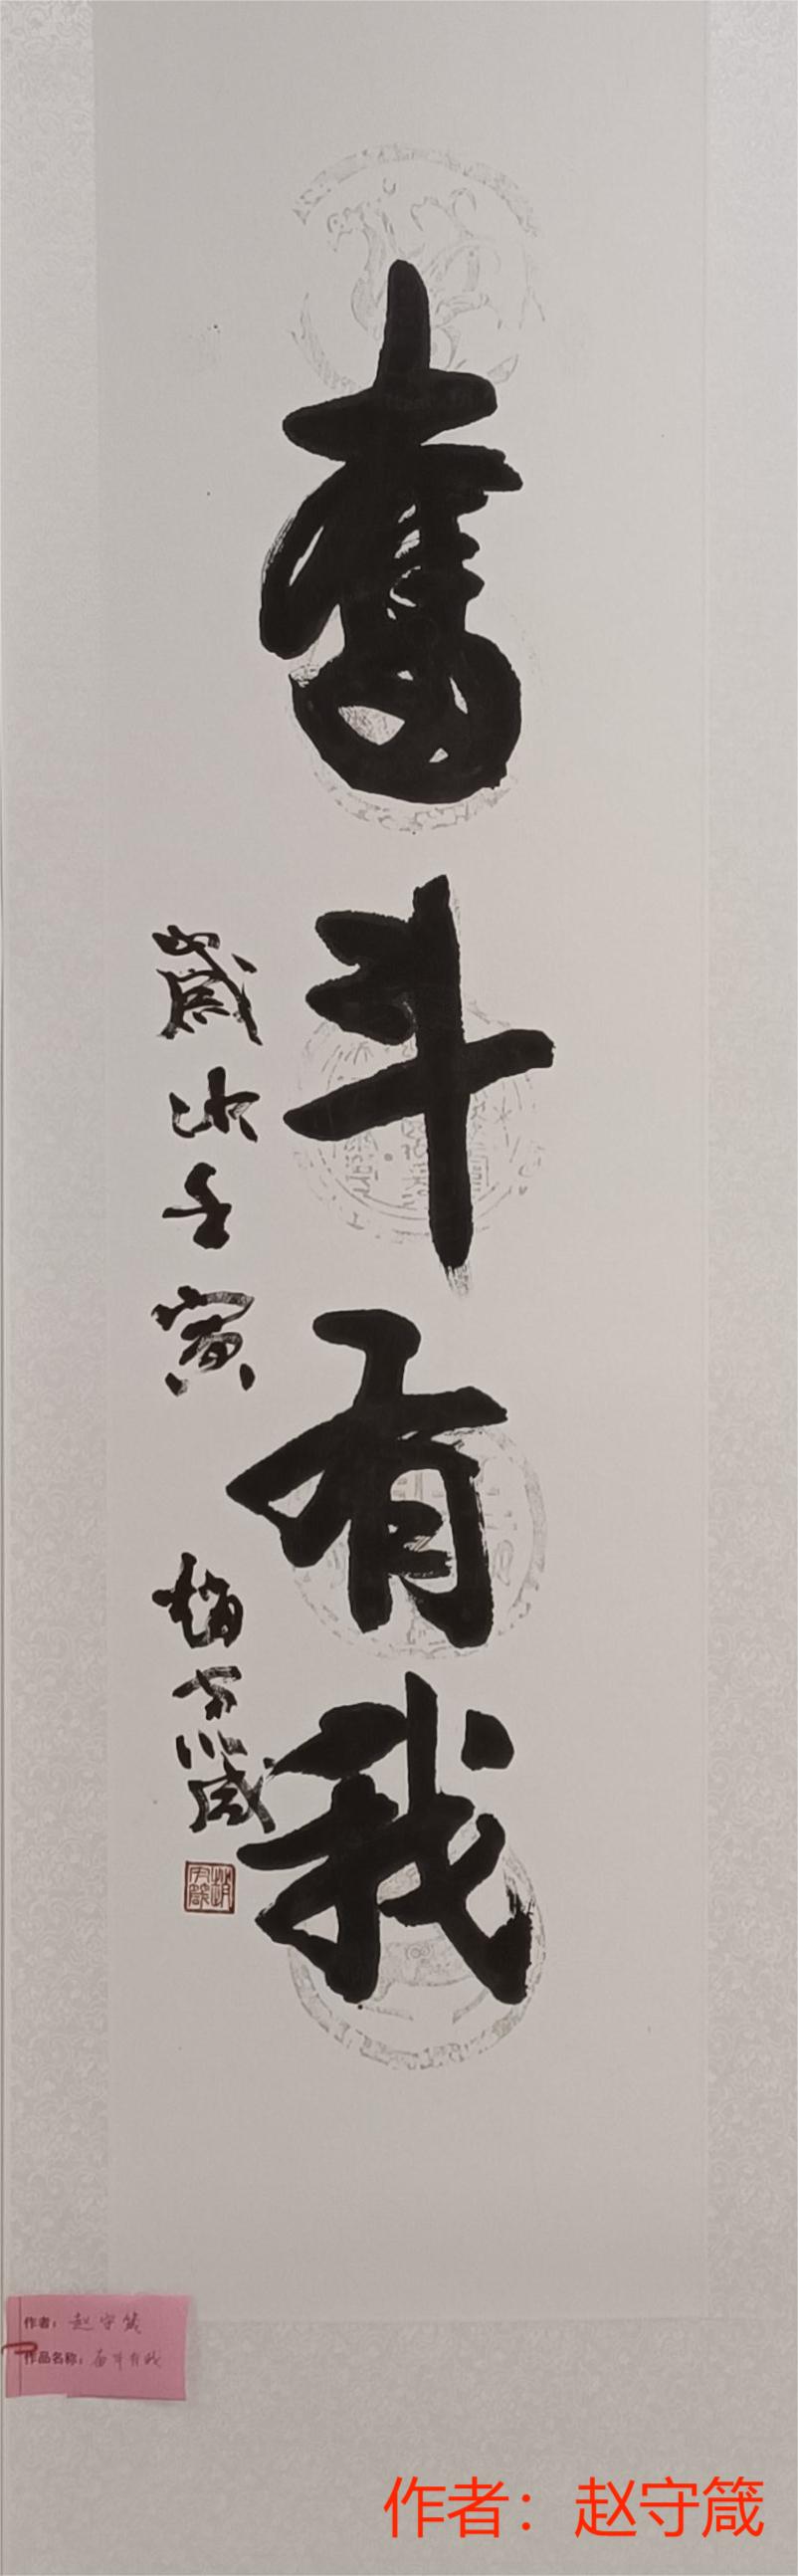 奮斗有我
歲次壬寅
趙守箴
作者：赵守箴
作品名称：奋斗有我
作者：赵守箴